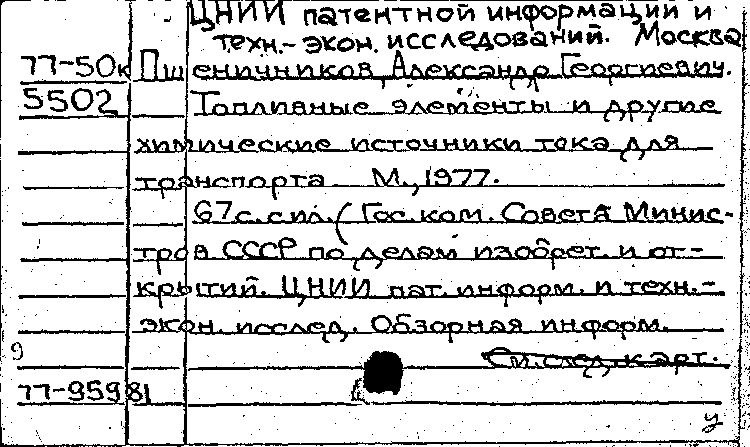 ЦНИИ патентной информации и
техн.-экон. исследований. Москва
77-50к Пшеничников, Александр Георгиевич.
5502 Топливные элементы и другие
химические источники тока для
транспорта М., 1977.
67 с. с ил. (Гос. ком. Совета Минис-
тров СССР по делам изобрет. и от-
крытий. ЦНИИ пат. информ. и техн.-
экон. исслед. Обзорная информ.
9
См. след. карт.
77-95981
у